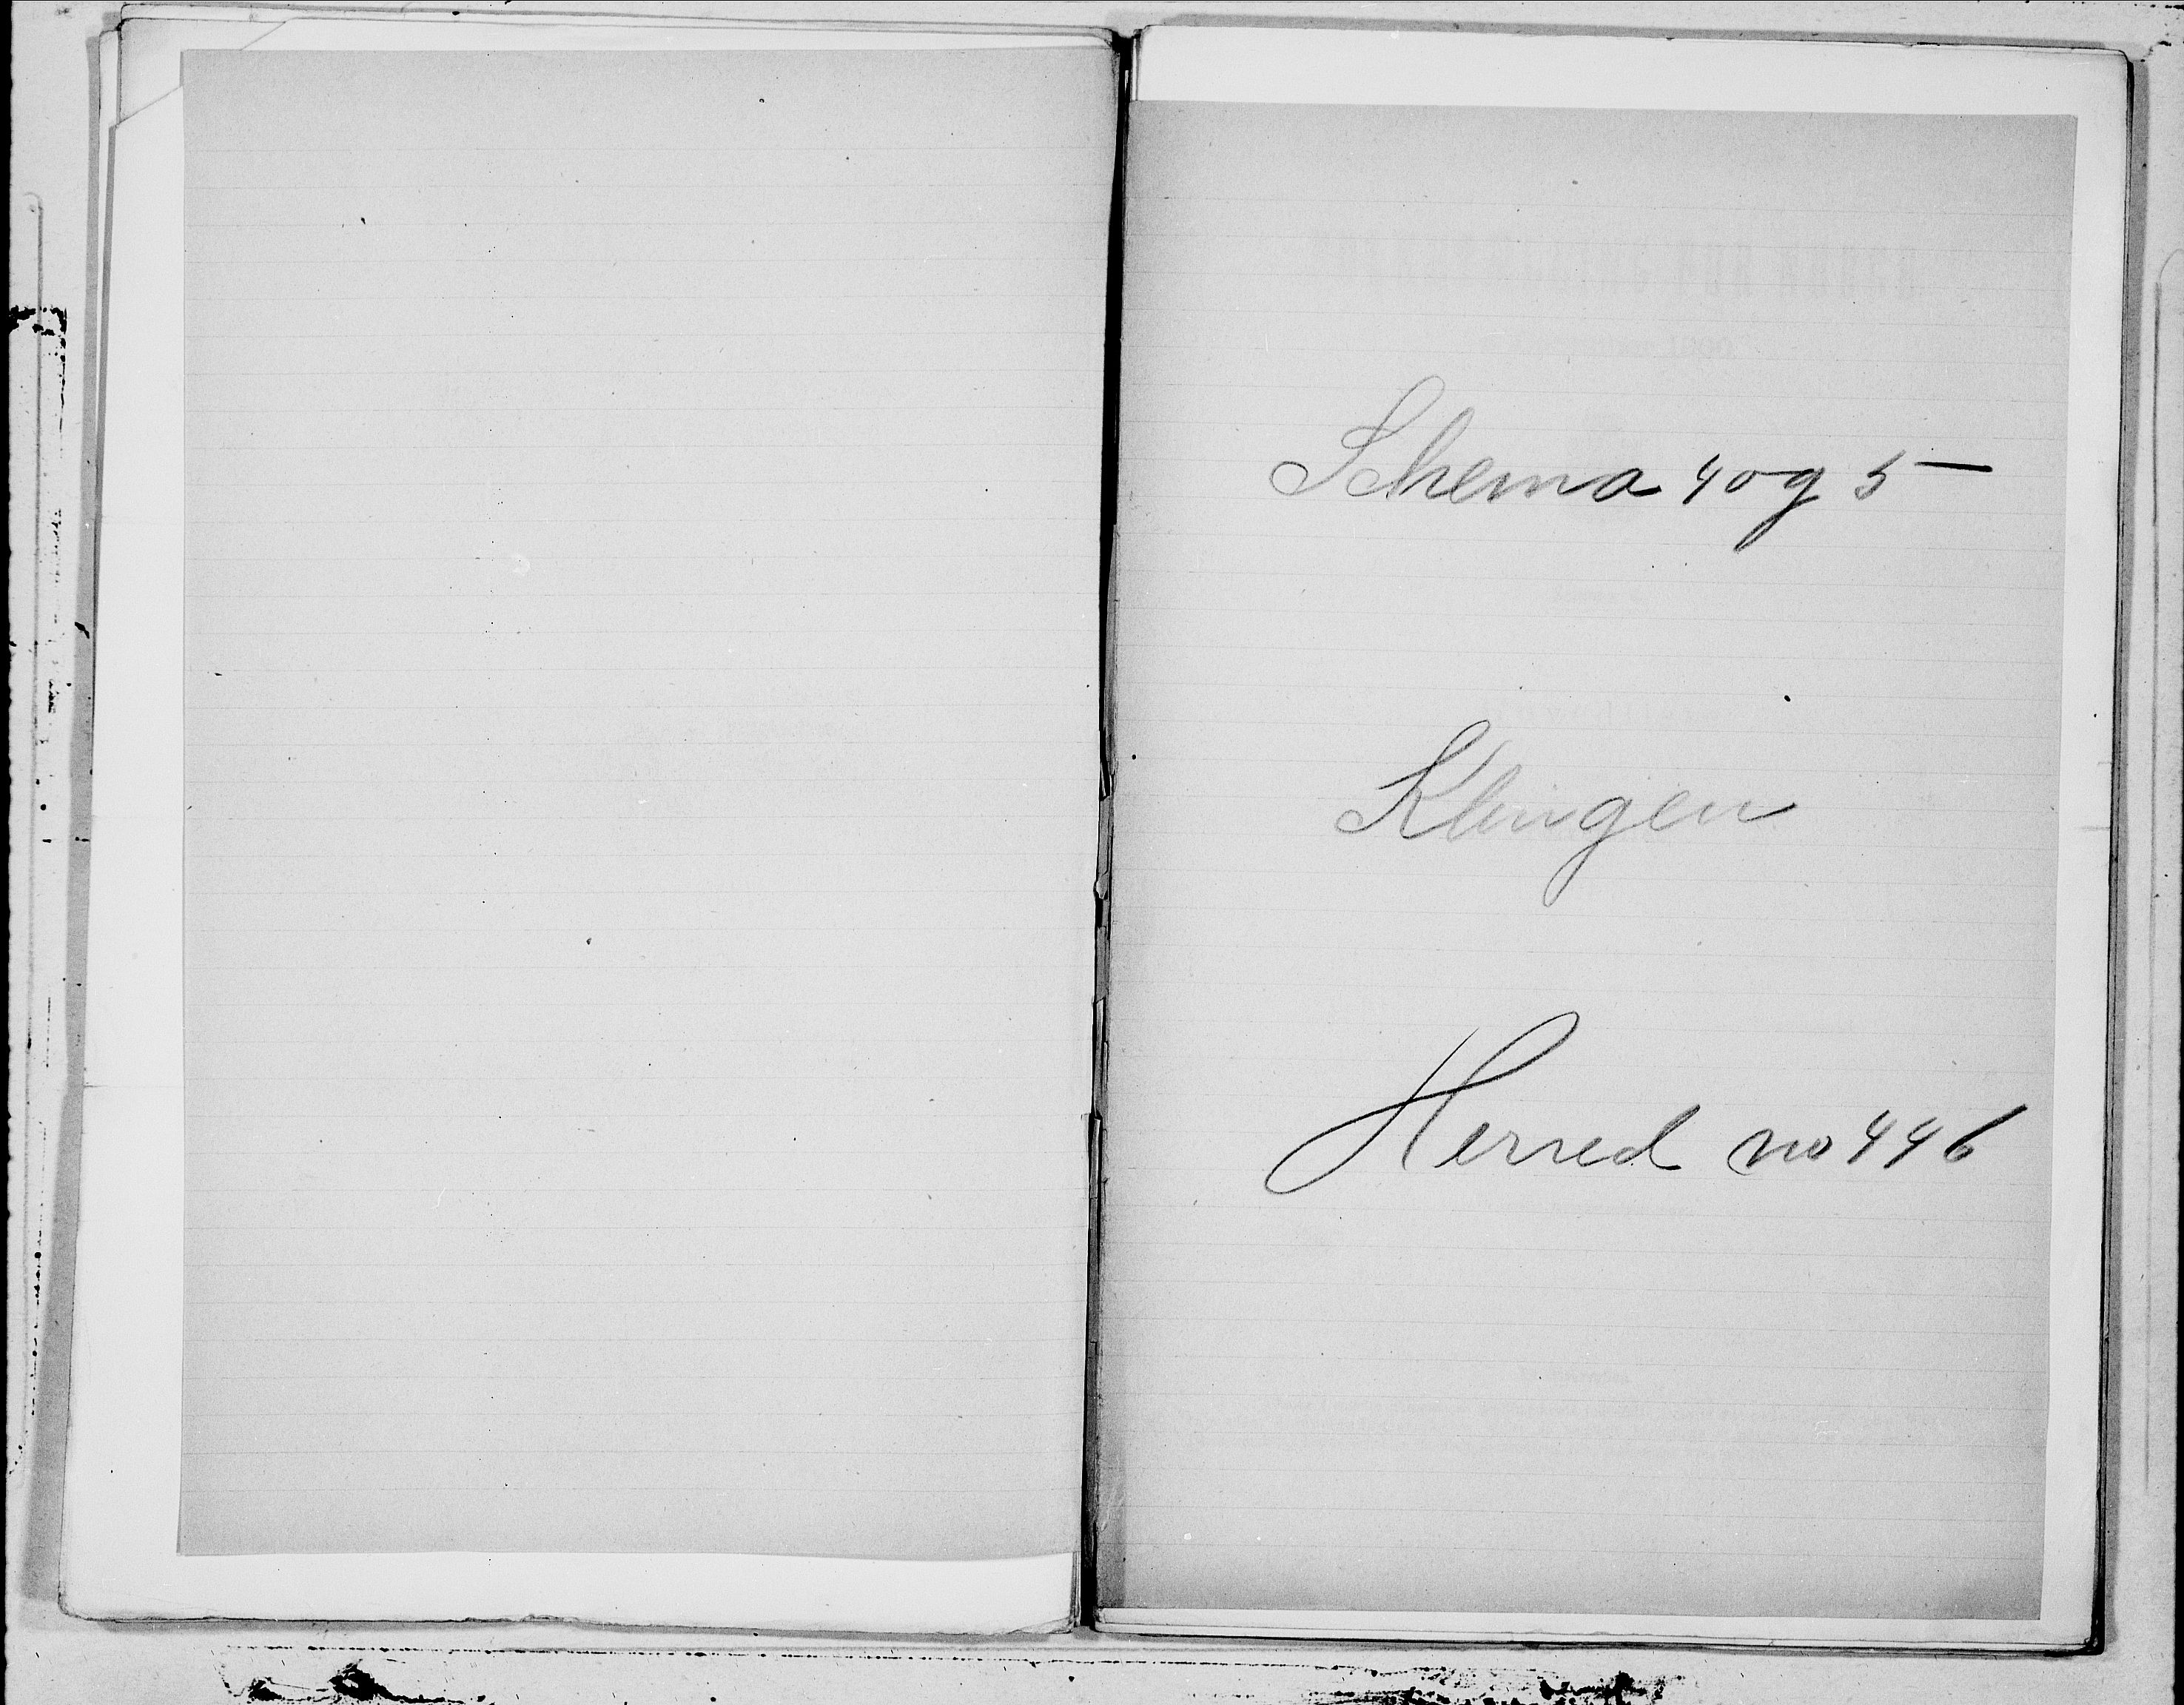 Schema 4 og 5
Klingen
Herred no 446